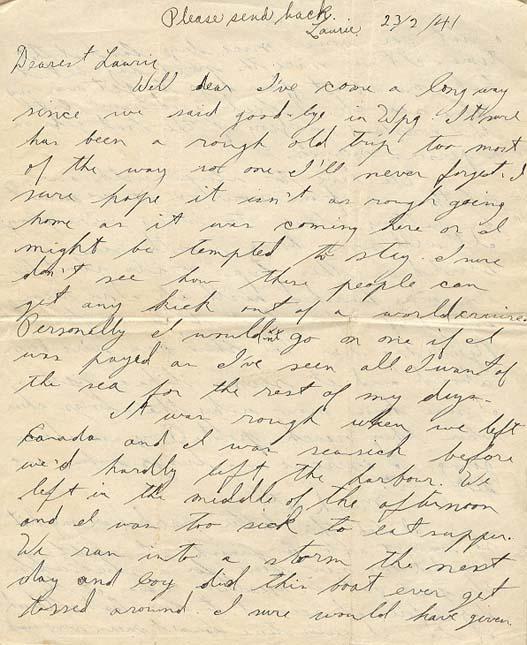 Please send back.
Laurie. 23/2/41
Dearest Laurie
Well dear I've come a long way
since we said good-bye in Wpg. It sure
has been a rough old trip too most
of the way not one I'll never forget. I
sure hope it isn't as rough going
home as it was coming here or I
might be tempted to stay. I sure
don't see how these people can
get any kick out of a world cruise.
Personally I wouldn't go on one if I
was payed as I've seen all I want of
the sea for the rest of my days.
It was rough when we left
Canada and I was seasick before
we'd hardly left the harbour. We
left in the middle of the afternoon
and I was too sick to eat supper.
We ran into a storm the next
day and boy did this boat ever get
tossed around. I sure would have given